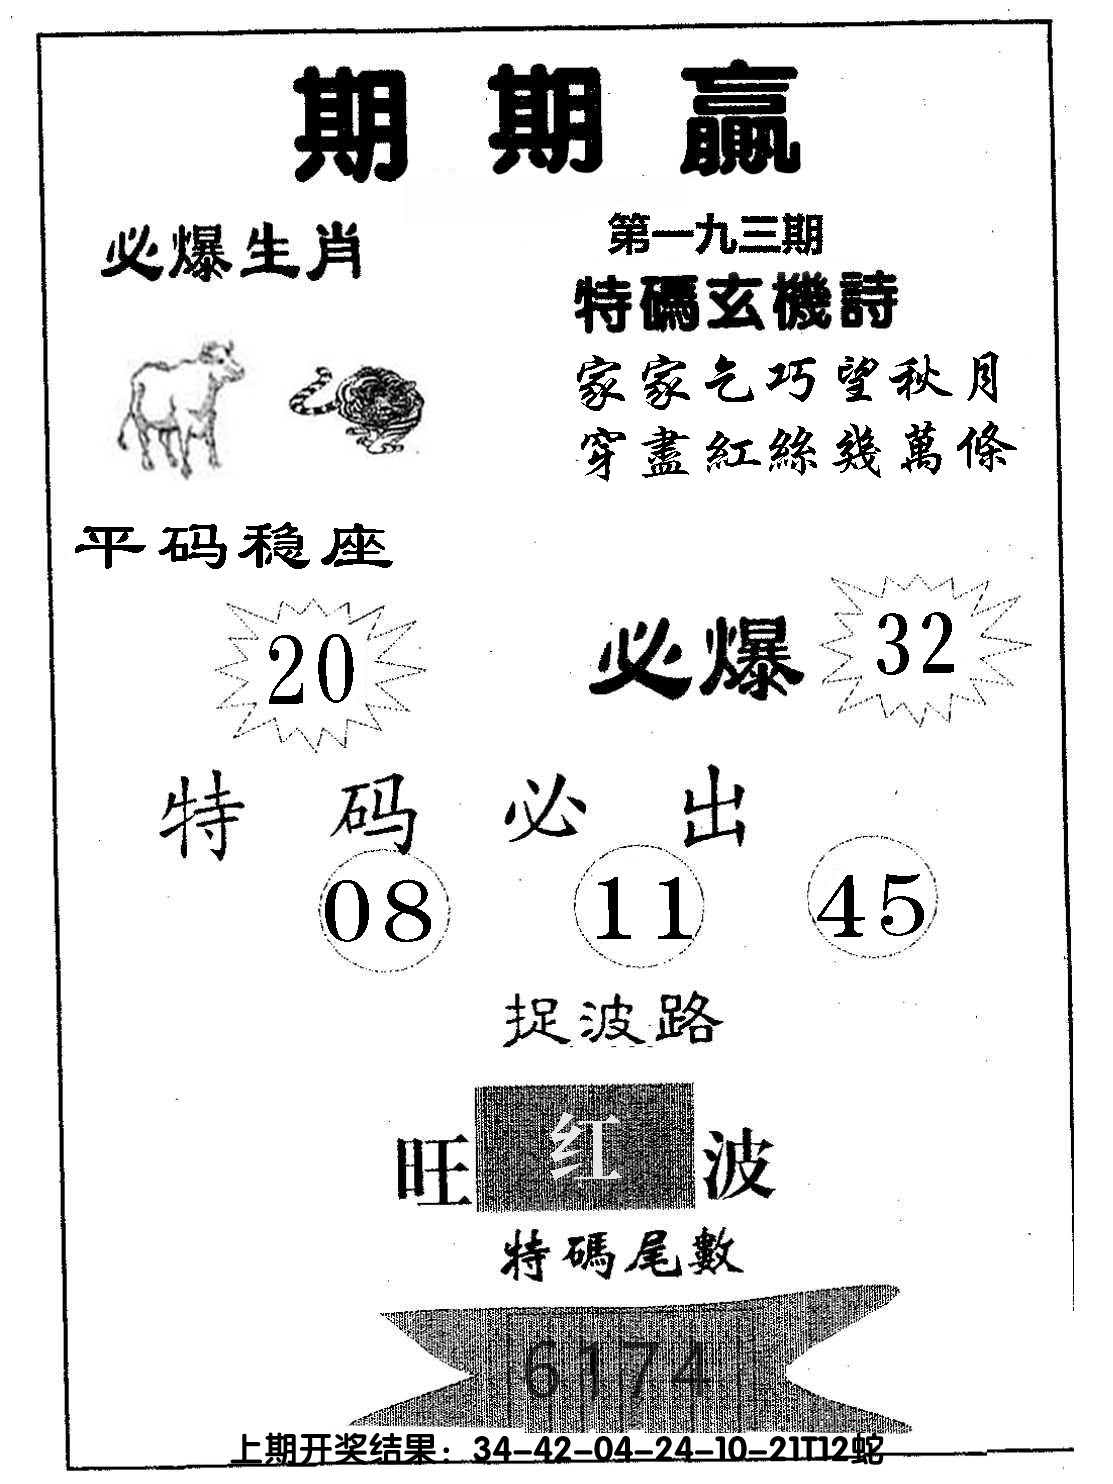 期期贏
必爆生肖
第一九三期
特碼玄機詩
家家乞巧望秋月
穿盡紅絲幾萬條
平码稳座
20
必爆 32
特码必出
08 11 45
捉波路
旺红波
特碼尾數
6174
上期开奖结果：34-42-04-24-10-21T12蛇